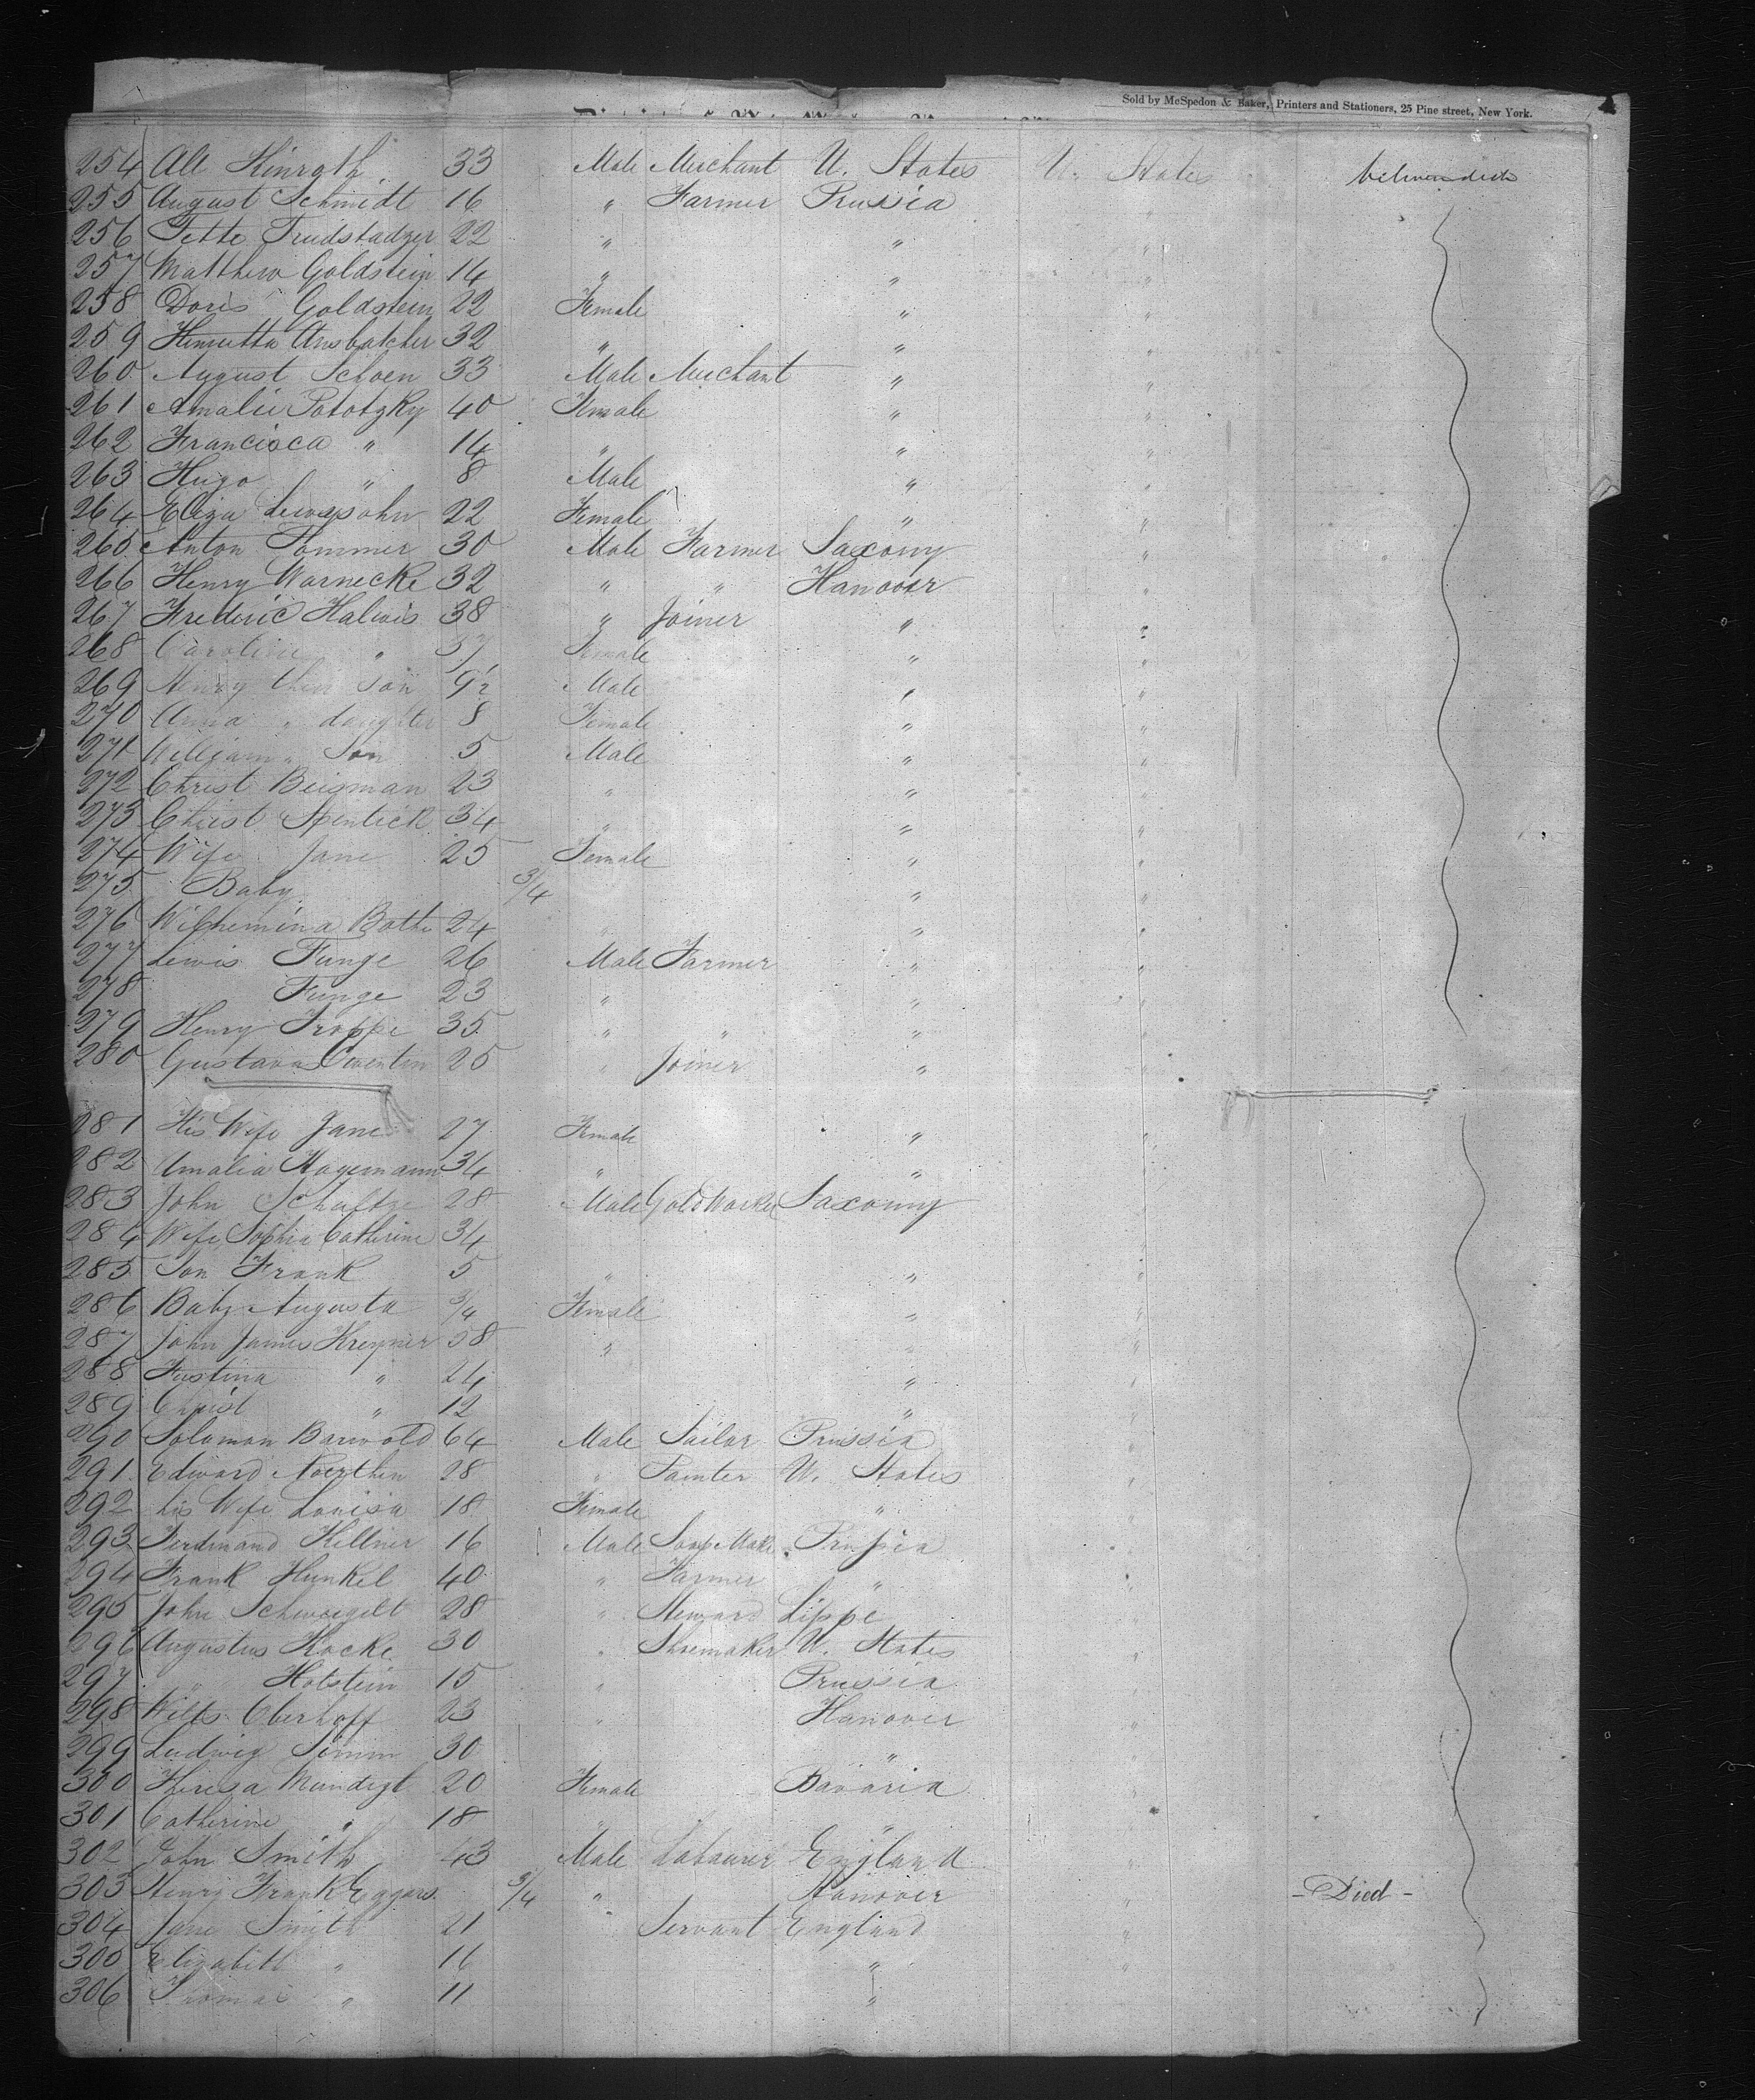 Sold by McSpedon & Baker, Printers and Stationers, 25 Pine street, New York.
254 Alt Hinrgth 33 Male Merchant U. States U. States
255 August Schmidt 16 " Farmer Prussia "
256 Tette 22 " " "
257 Matthew Goldstein 14 " " "
258 Doris Goldstein 22 Female " "
259 Henrietta Ansbatcher 32 " " "
260 August Schoen 33 Male Merchant " "
261 Amalie Pototzky 40 Female " "
262 Francisca " 14 " " "
263 Hugo " 8 Male " "
264 Eliza 22 Female " "
265 Anton Sommer 30 Male Farmer Saxony "
266 Henry Warnecke 32 " " Hanover "
267 Frederic Halwis 38 " Joiner " "
268 Caroline " 37 Female " "
269 Henry their Son 9½ Male " "
270 Anna " daughter 8 Female " "
271 William " Son 5 Male " "
272 Christ Beigman 23 " " "
273 Christ Spenteck 34 " " "
274 Wife Jane 25 Female " "
275 Baby 3/4 " "
276 Wilhemina Bothe 24 " " "
277 Lewis Funge 26 Male Farmer " "
278 Funge 23 " " "
279 Henry Troppe 35 " " " "
280 Gustava 25 " Joiner " "
281 His Wife Jane 27 Female " "
282 Amalia Hagemann 34 " "
283 John Schultze 28 Male Gold Worker Saxony
284 Wife Sophia Catherine 34
285 Son Frank 5 " " "
286 Baby Augusta 3/4 Female " "
287 John James Kreymer 58 " " "
288 Justina " 24 " "
289 Christ " 12 "
290 Solomon Barwold 64 Male Sailor Prussia "
291 Edward Noerthen 28 " Painter U. States "
292 his Wife Louisa 18 Female " "
293 Ferdinand Hellner 16 Male Soap Make Prussia "
294 Frank Hunkel 40 " Farmer " "
295 John Schweigelt 28 " Steward Lippe
296 Augustus Hocke 30 " Shoemaker U. States "
297 " Holstein 15 " Prussia
298 Wilts Oberhoff 23 " Hanover "
299 Ludwig Simm 30 "
300 Theresa Mundigl 20 Female Bavaria "
301 Catherine " 18 " "
302 John Smith 43 Male Labourer England "
303 Henry Frank Eggars 3/4 " Hanover " - Died -
304 Jane Smith 21 " Servant England "
305 Elizabeth " 16 " "
306 Thomas " 11 "